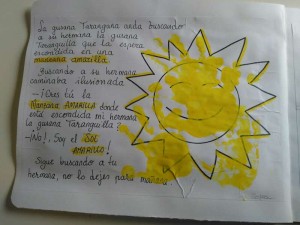 La gusana Taranguna anda buscando
a su hermana la gusana
Taranguilla que la espera
escondida en una
manzana amarilla.
Buscando a su hermana
caminaba ilusionada.
- ¿Eres tú la
Manzana AMARILLA donde
está escondida mi hermana
la gusana Taranguilla?
- ¡No!, Soy el SOL
AMARILLO!
Sigue buscando a tu
hermana, no lo dejes para mañana.